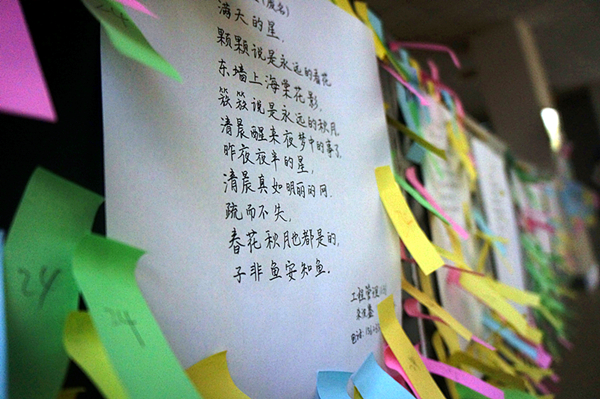 （废名）
满天的星，
颗颗说是永远的春花
东墙上海棠花影，
簇簇说是永远的秋月
清晨醒来夜梦中的事了，
昨夜夜半的星，
清晨真如明丽的网，
疏而不失，
春花秋月也都是的，
子非鱼安知鱼。
工程管理
24
24